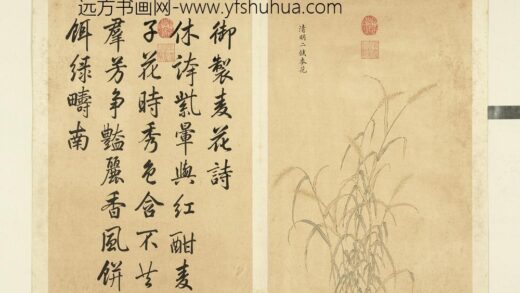 远方书画网-www.yfshuhua.com
清明二候麦花
御製麦花詩
休誇紫暈與紅酣麦
子花時秀色含不共
羣芳争豔麗香風餅
餌绿疇南